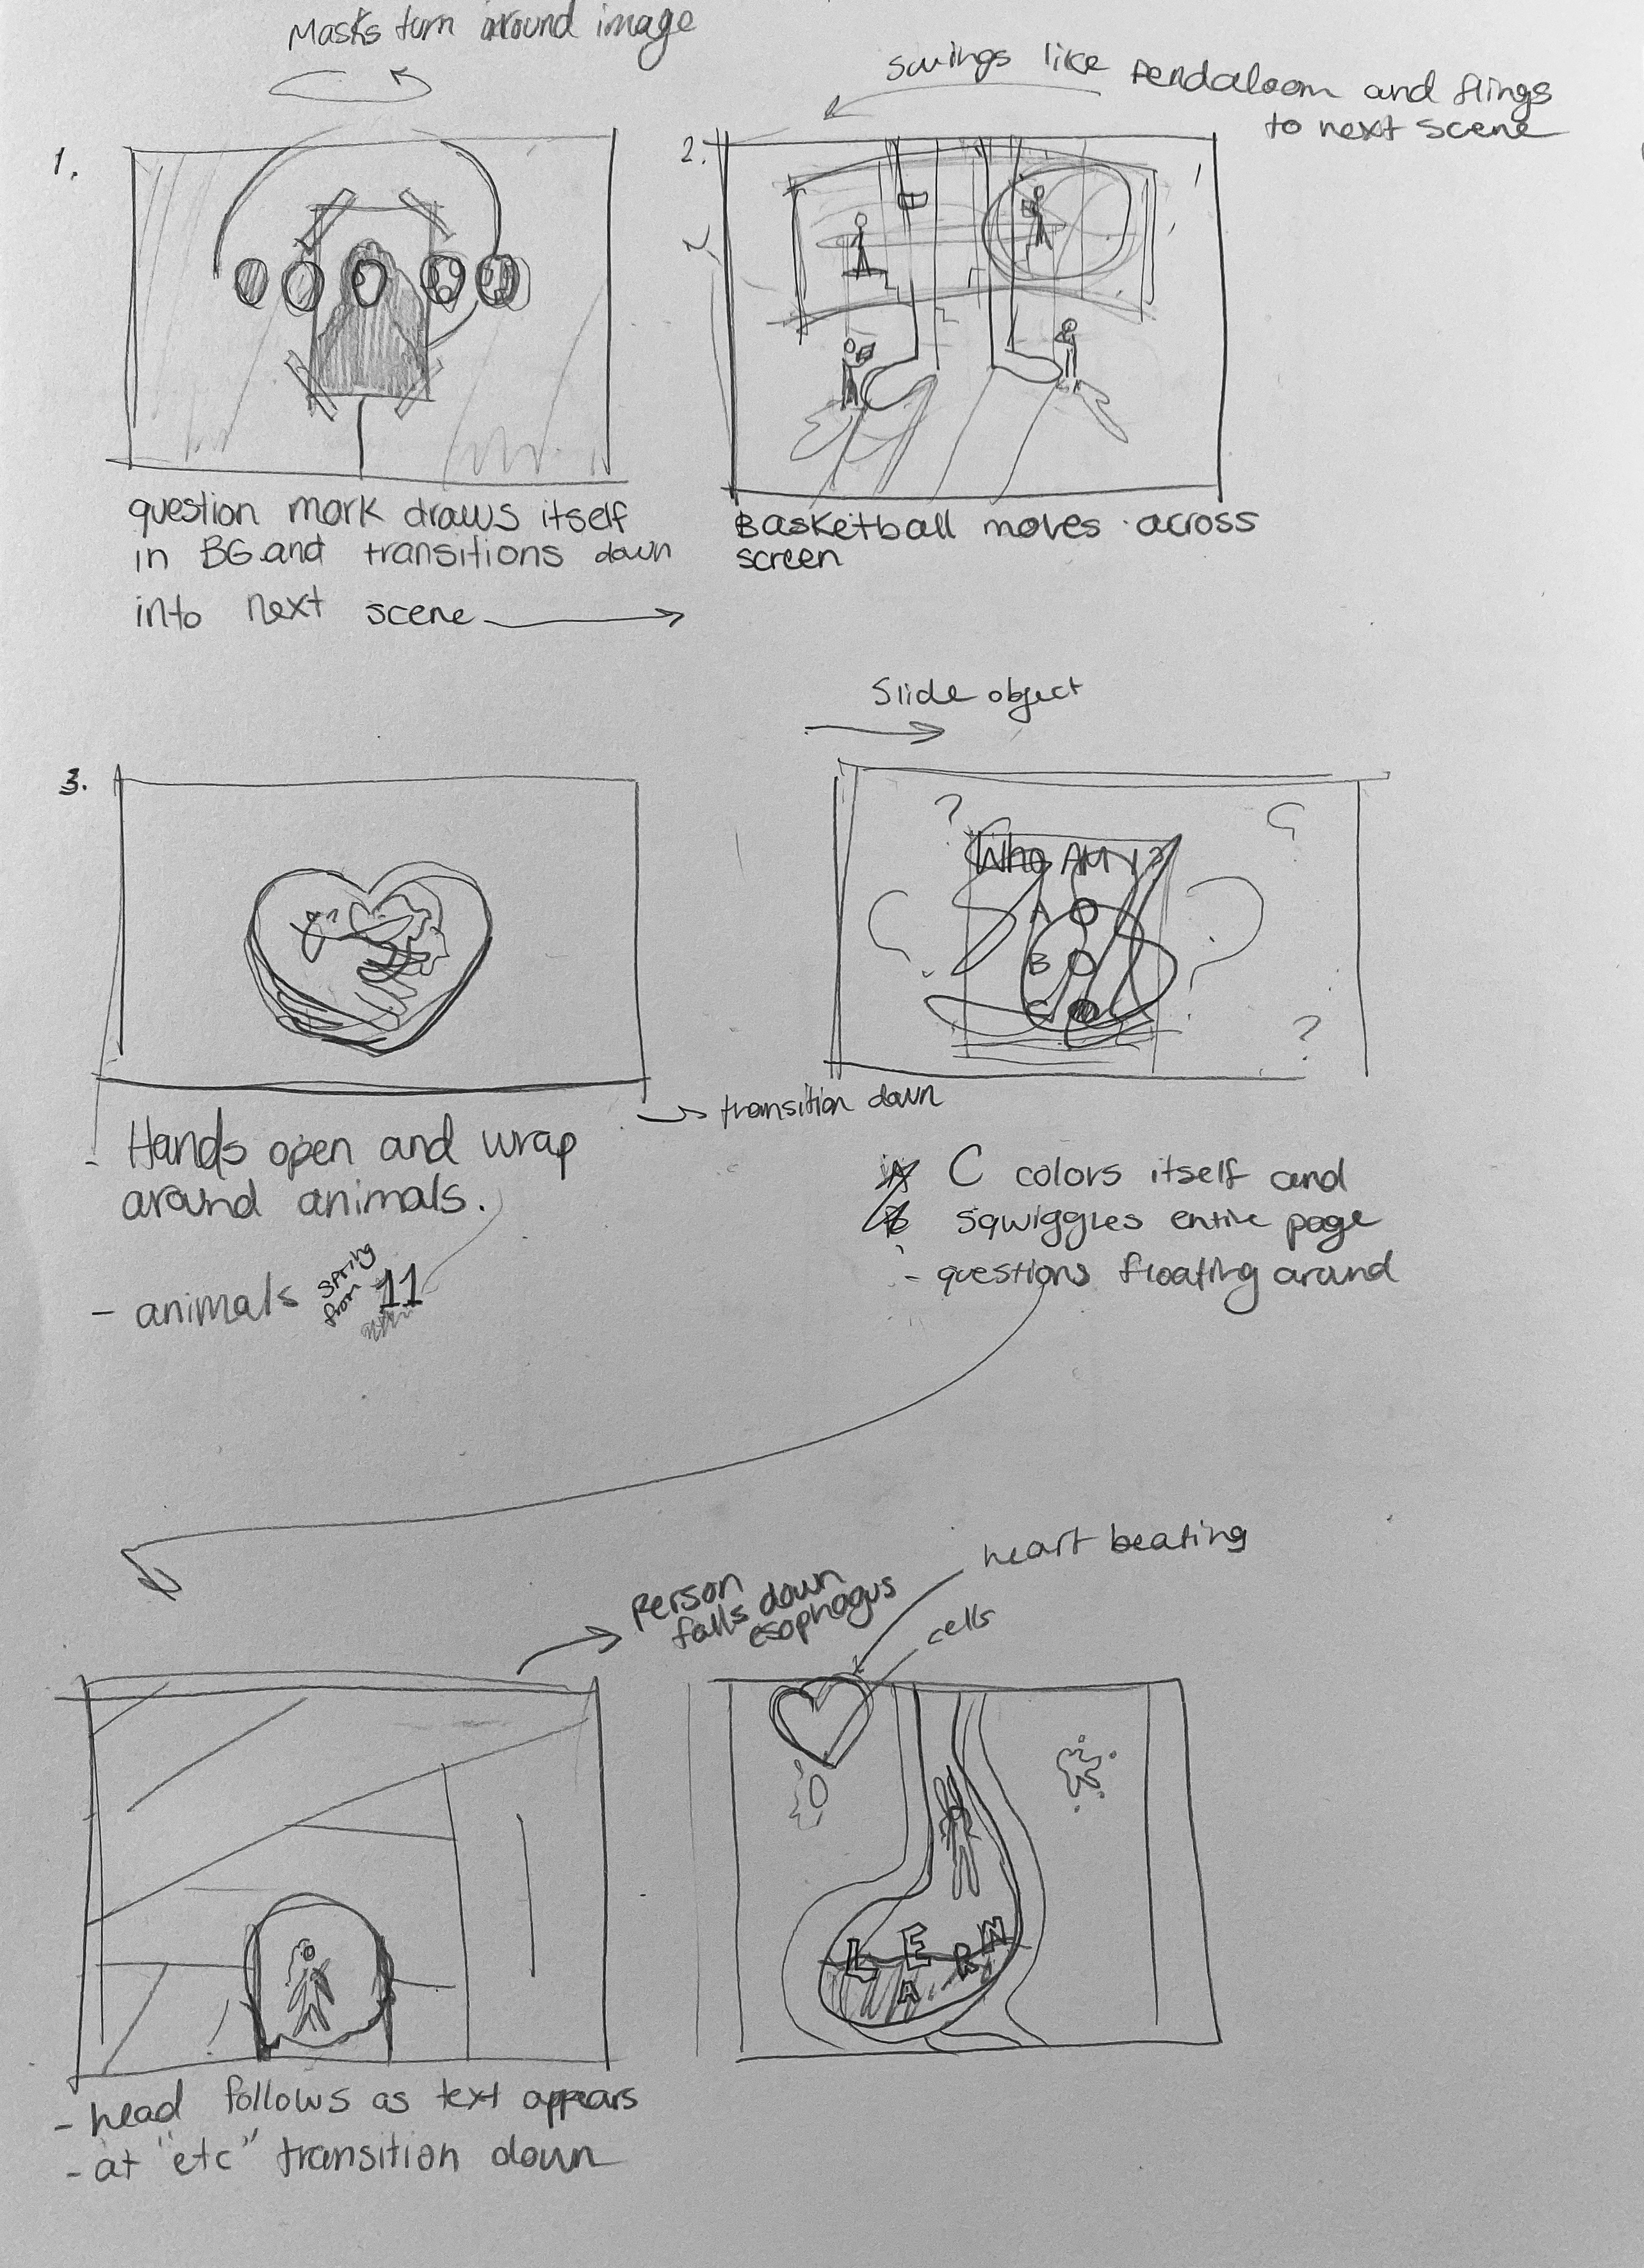 Masks turn around image
swings like pendaloom and flings
to next scene
1.
2.
question mark draws itself
in BG and transitions down
into next scene
Basketball moves across
screen
Slide object
3.
?
Who AM I?
A
B
C
?
?
transition down
- Hands open and wrap
around animals.
- animals spring from 11
C colors itself and
squiggles entire page
- questions floating around
heart beating
Person
falls down
esophagus
cells
L E A R N
- head follows as text appears
- at "etc" transition down